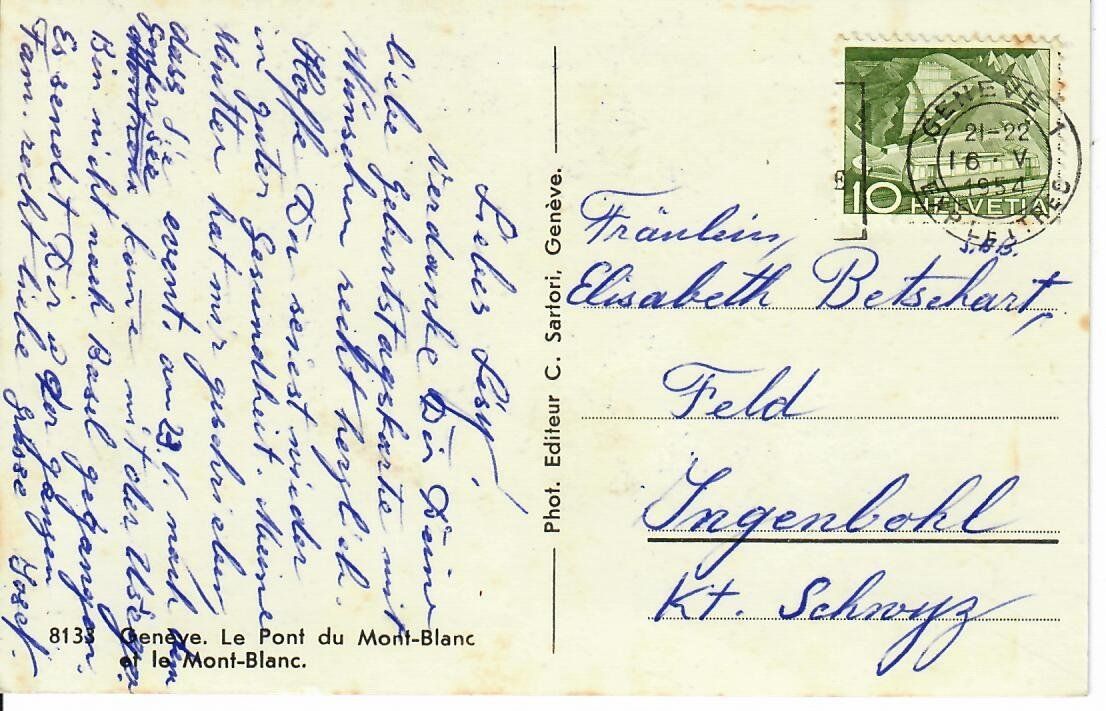 Liebes Lisy!
Verdanke Dir Deine
liebe Geburtstagskarte mit
Wünschen recht herzlich.
Hoffe Du seiest wieder
in guter Gesundheit. Meine
Mutter hat mir geschrieben
dass sie event. am 23. V. nach dem
Genfersee käme mit der
Bin nicht nach Basel gegangen.
Es sendet Dir & Der ganzen
Fam. recht liebe Grüsse Josef.
8133 Genève. Le Pont du Mont-Blanc
et le Mont-Blanc.
Phot. Editeur C. Sartori, Genève.
GENEVE 1
21-22
16·V
1954
EXP. LETTRES
10 HELVETIA
Fräulein,
Elisabeth Betschart,
Feld
Ingenbohl
Kt. Schwyz